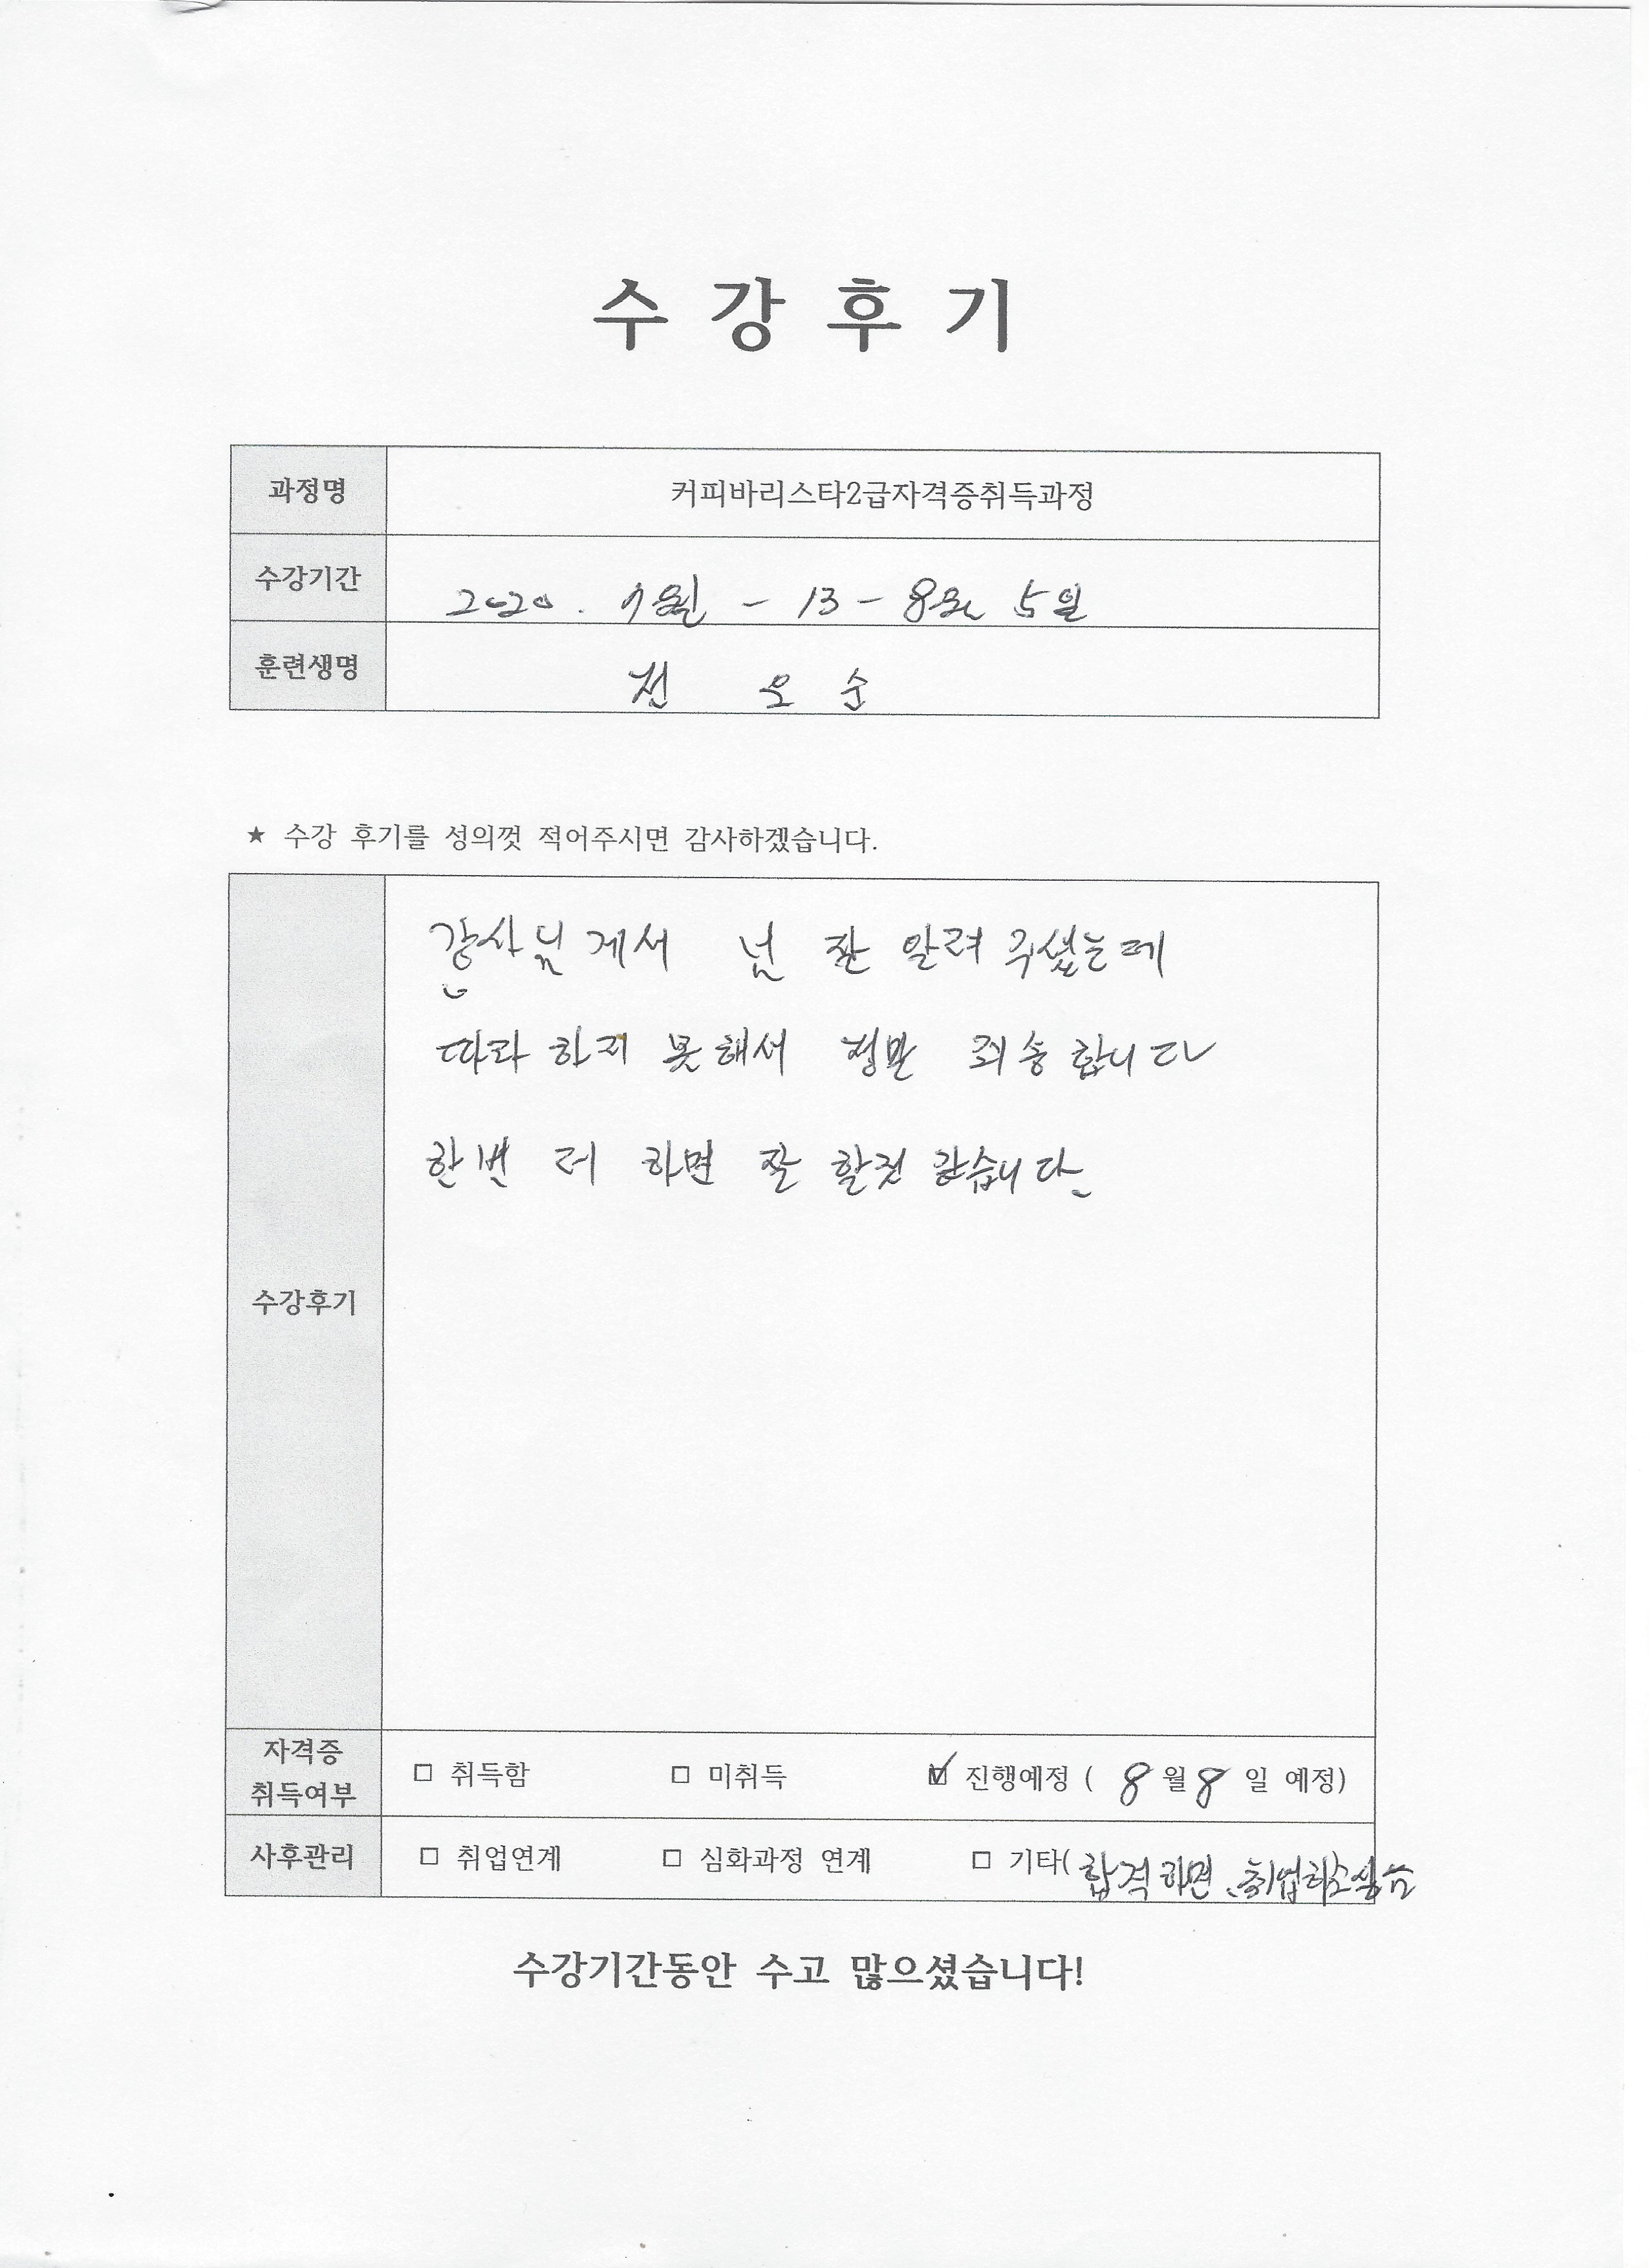 수 강 후 기
과정명 커피바리스타2급자격증취득과정
수강기간 2020. 7월 - 13 - 8월 5일
훈련생명 전 오 순
★ 수강 후기를 성의껏 적어주시면 감사하겠습니다.
강사님 게서 넘 잘 알려 주셨는데
따라 하지 못해서 정말 죄송합니다
한번 더 하면 잘 할것 같습니다.
수강후기
자격증
취득여부 □ 취득함 □ 미취득 ☑ 진행예정 ( 8월 8일 예정)
사후관리 □ 취업연계 □ 심화과정 연계 □ 기타( 합격하면 취업하고싶슴
수강기간동안 수고 많으셨습니다!